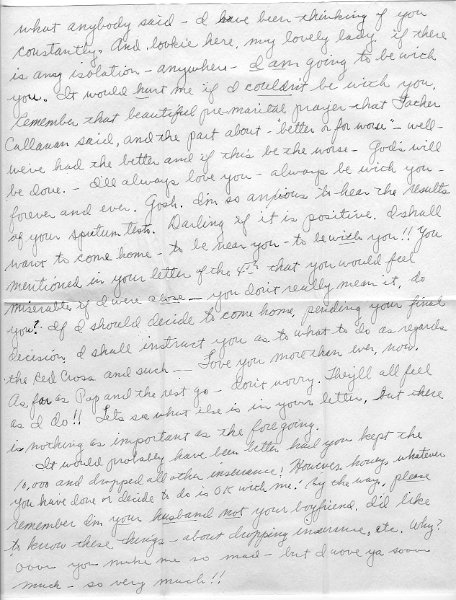 what anybody said - I have been thinking of you
constantly. And lookie here, my lovely lady, if there
is any isolation - anywhere - I am going to be with
you. It would hurt me if I couldn't be with you.
Remember that beautiful pre-marital prayer that Father
Callanan said, and the part about - "better or for worse" - well -
we've had the better and if this be the worse - God's will
be done. - I'll always love you - always be with you -
forever and ever. Gosh, I'm so anxious to hear the results
of your sputum tests. Darling if it is positive, I shall
want to come home - to be near you - to be with you!! You
mentioned in your letter of the 4th that you would feel
miserable if I were close - you don't really mean it, do
you? If I should decide to come home, pending your final
decision, I shall instruct you as to what to do as regards
the Red Cross and such -- Love you more than ever, now.
As far as Pap and the rest go - don't worry. They'll all feel
as I do!! Let's see what else is in your letter, but there
is nothing as important as the foregoing.
It would probably have been better had you kept the
10,000 and dropped all other insurance! However honey, whatever
you have done or decide to do is OK with me! By the way, please
remember I'm your husband not your boyfriend. I'd like
to know these things - about dropping insurance, etc. Why?
Ooov you make me so mad - but I wove ya sooon
much - so very much!!